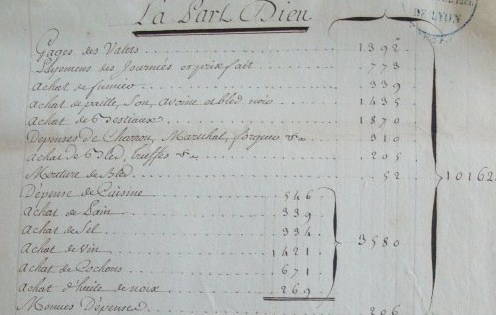 La Part Dieu
DE LYON
Gages des Valets 1392
Payemens des Journées et prix fait 773
achat de fumier 339
achat de paille, son, avoine et bled noir 1435
achat de Bestiaux 1870
Dépenses de Charron, Maréchal, forgeur &a 310
achat de Bled, truffes &a 205
Mouture de Bled 52
10162
Dépense de Cuisine 546
achat de Pain 339
achat de Sel 334
achat de vin 1421
3580
achat de Cochons 671
achat d'huile de noix 269
Menues Dépenses 206